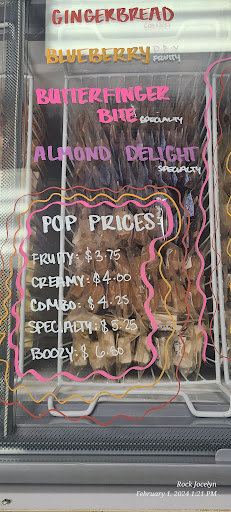 GINGERBREAD
BLUEBERRY FRUITY
BUTTERFINGER
BITE SPECIALTY
ALMOND DELIGHT
SPECIALTY
POP PRICES
FRUITY: $3.75
CREAMY: $4.00
COMBO: $4.25
SPECIALTY: $5.25
BOOZY: $6.50
Rock Jocelyn
February 1, 2024 1:21 PM